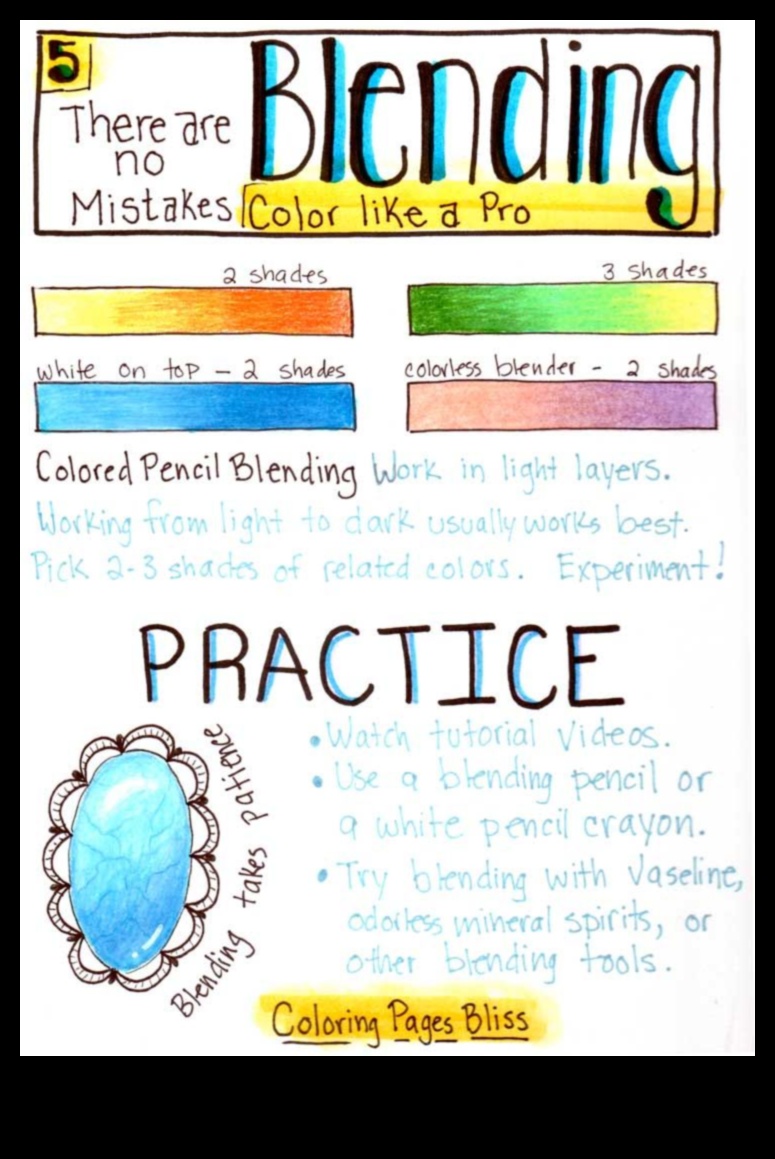 5
Blending
There are
no
Mistakes
Color like a Pro
2 shades
3 shades
white on top - 2 shades
colorless blender - 2 shades
Colored Pencil Blending Work in light layers.
Working from light to dark usually works best.
Pick 2-3 shades of related colors. Experiment!
PRACTICE
• Watch tutorial videos.
• Use a blending pencil or
a white pencil crayon.
• Try blending with Vaseline,
odorless mineral spirits, or
other blending tools.
Blending takes patience
Coloring Pages Bliss